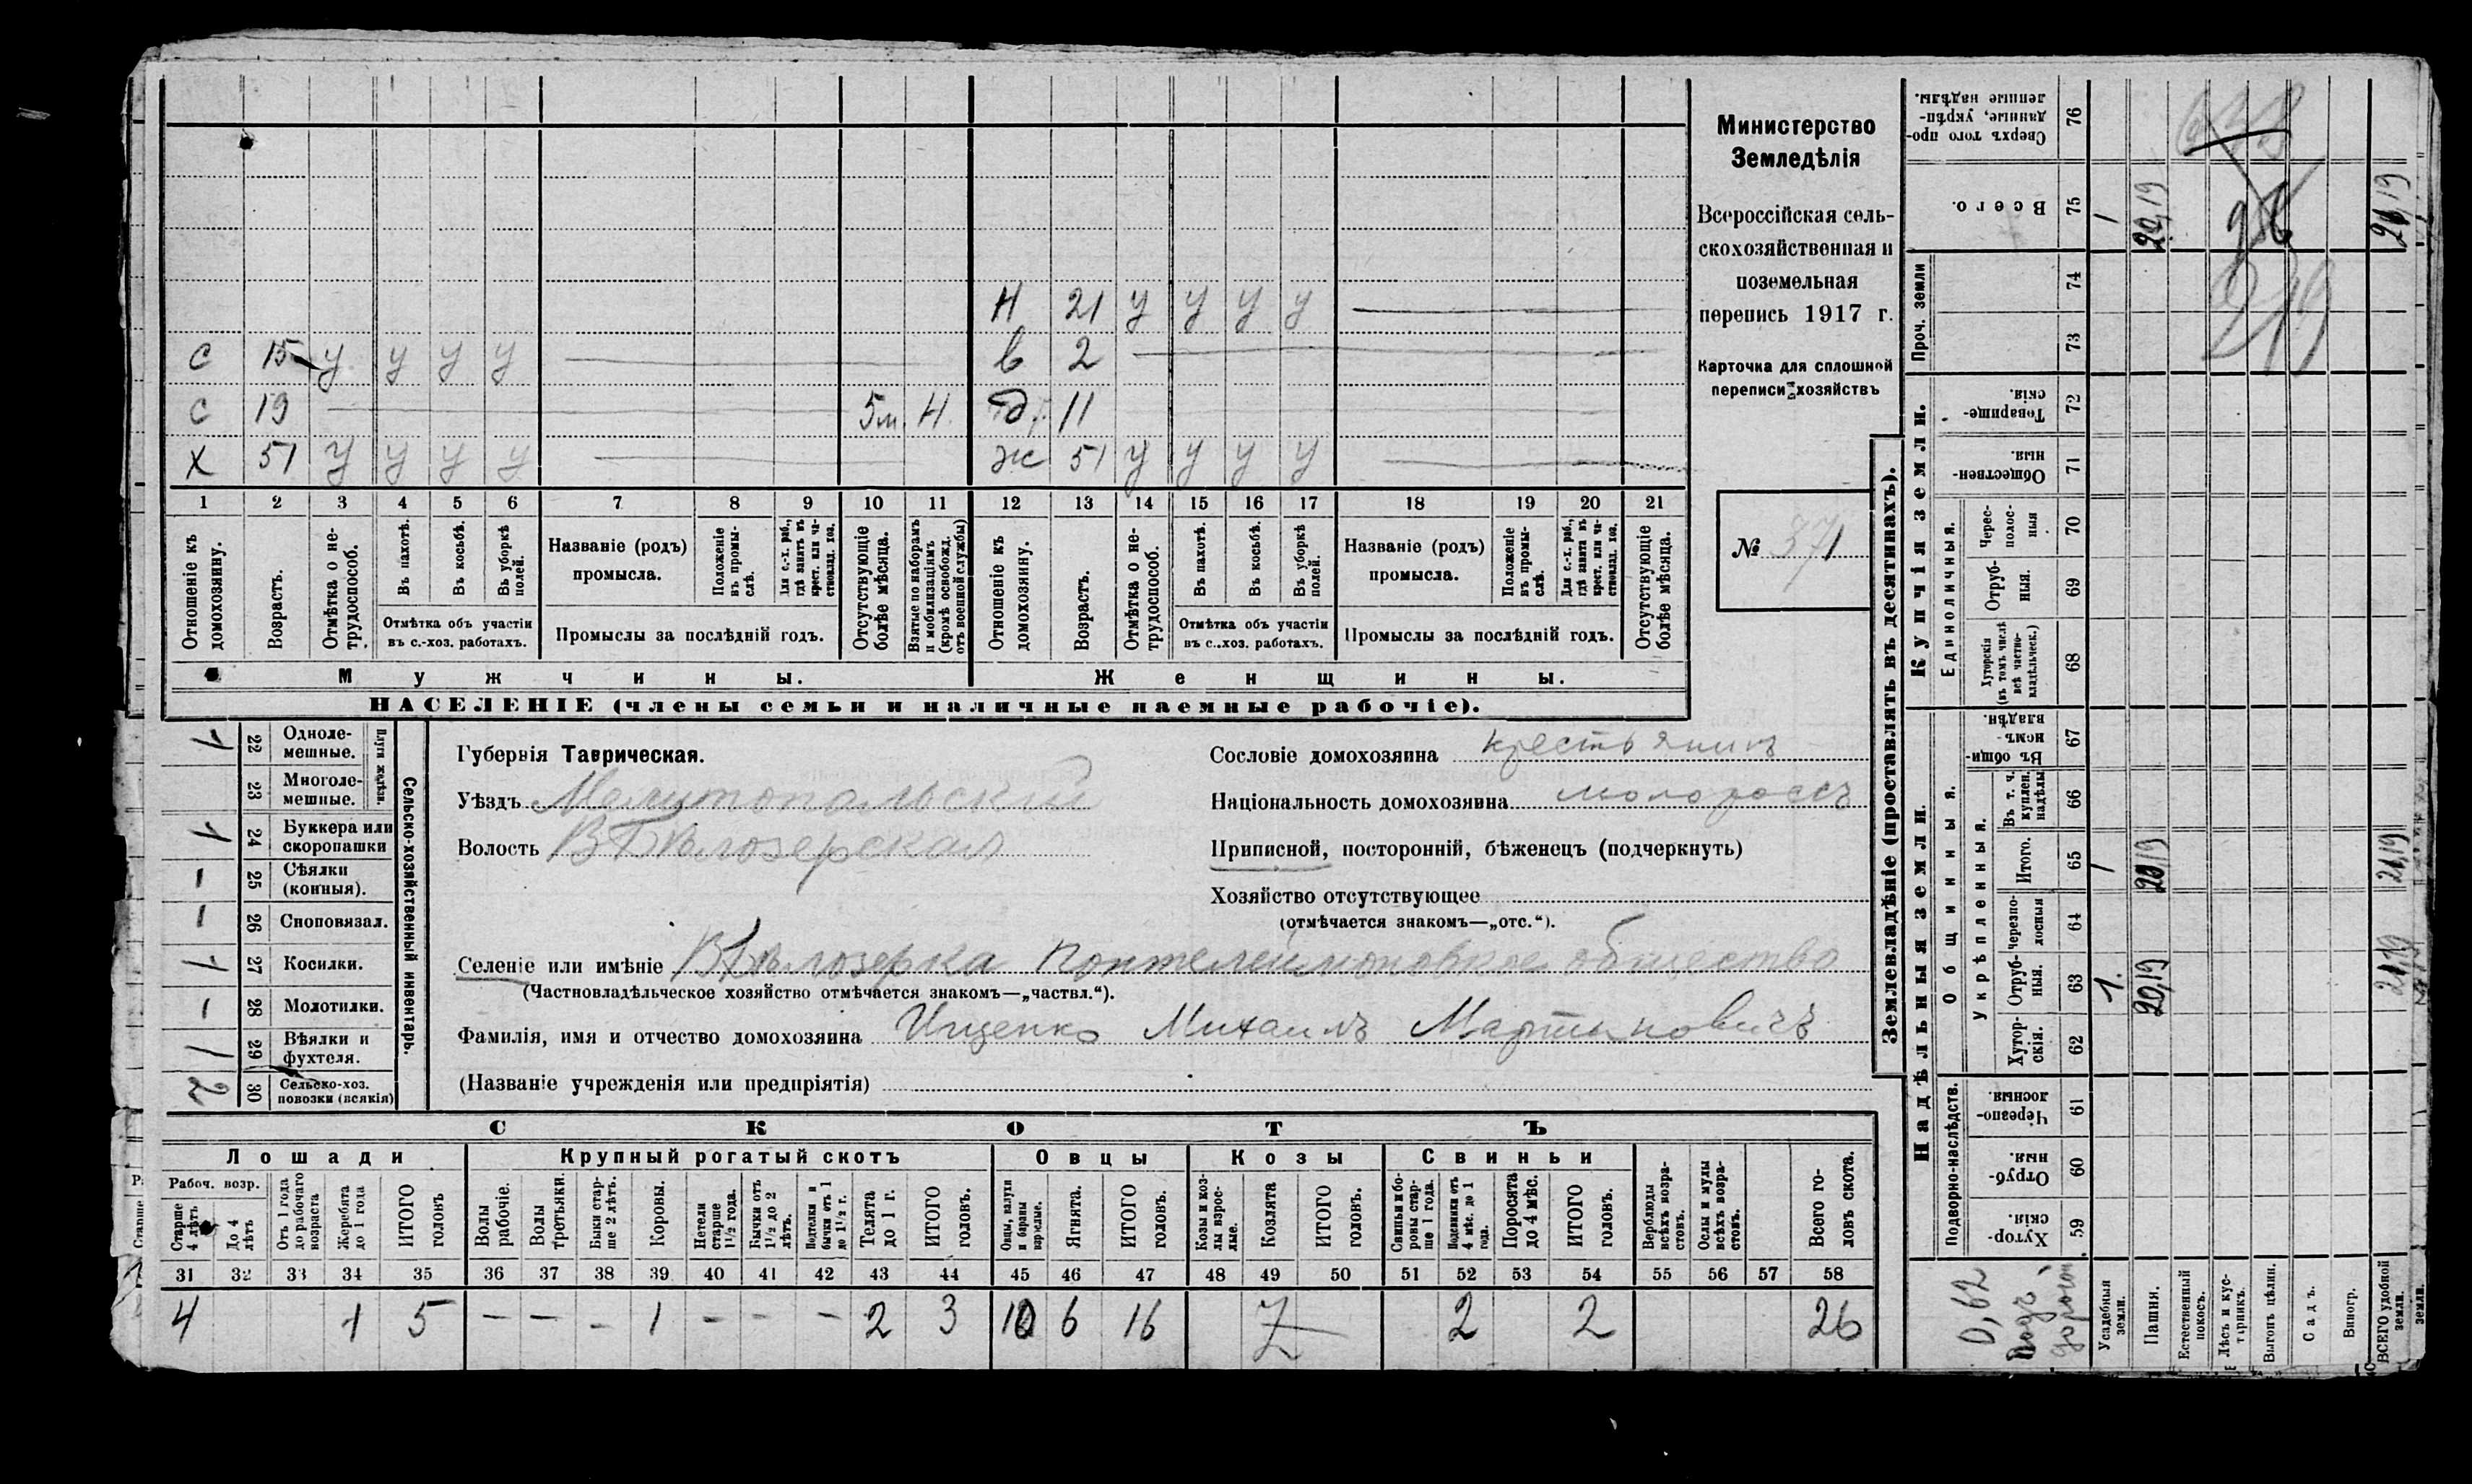 Н 21 у у у у
С 15 у у у у
в 2
С 19 5 м. Н
д. 11
Х 51 у у у у
ж 51 у у у у
1 2 3 4 5 6 7 8 9 10 11 12 13 14 15 16 17 18 19 20 21
Отношеніе къ домохозяину.
Возрастъ.
Отмѣтка о не-трудоспособ.
Въ пахотѣ.
Въ косьбѣ.
Въ уборкѣ полей.
Отмѣтка объ участіи
въ с.-хоз. работахъ.
Названіе (родъ)
промысла.
Положеніе въ промы-слѣ.
Для с.-х. раб., гдѣ занятъ въ крест. или ча-стновлад. хоз.
Промыслы за послѣдній годъ.
Отсутствующіе болѣе мѣсяца.
Взятые по наборамъ и мобилизаціямъ (кромѣ освобожд. отъ военной службы)
Отношеніе къ домохозяину.
Возрастъ.
Отмѣтка о не-трудоспособ.
Въ пахотѣ.
Въ косьбѣ.
Въ уборкѣ полей.
Отмѣтка объ участіи
въ с.-хоз. работахъ.
Названіе (родъ)
промысла.
Положеніе въ промы-слѣ.
Для с.-х. раб., гдѣ занята въ крест. или ча-стновлад. хоз.
Промыслы за послѣдній годъ.
Отсутствующіе болѣе мѣсяца.
Мужчины.
Женщины.
НАСЕЛЕНІЕ (члены семьи и наличные наемные рабочіе).
Министерство
Земледѣлія
Всероссійская сель-
скохозяйственная и
поземельная
перепись 1917 г.
Карточка для сплошной
переписи хозяйствъ
№ 371
Сельско-хозяйственный инвентарь.
Плуги желѣзн.
1 22 Одноле-мешные.
23 Многоле-мешные.
1 24 Буккера или скоропашки
– 25 Сѣялки (конныя).
– 26 Сноповязал.
1 27 Косилки.
– 28 Молотилки.
1 29 Вѣялки и фухтеля.
2 30 Сельско-хоз. повозки (всякія)
Губернія Таврическая.
Уѣздъ Мелитопольский
Волость В Бѣлозерская
Сословіе домохозяина крестьянинъ
Національность домохозяина молороссъ
Приписной, посторонній, бѣженецъ (подчеркнуть)
Хозяйство отсутствующее
(отмѣчается знакомъ—„отс.“).
Селеніе или имѣніе В Бѣлозерка Понтелеймоновкое общество
(Частновладѣльческое хозяйство отмѣчается знакомъ—„частвл.“).
Фамилія, имя и отчество домохозяина Ищенко Михаилъ Мартыновичъ
(Названіе учрежденія или предпріятія)
СКОТЪ
Лошади
Крупный рогатый скотъ
Овцы
Козы
Свиньи
Рабоч. возр.
Старше 4 лѣтъ
До 4 лѣтъ
Отъ 1 года до рабочаго возраста
Жеребята до 1 года
ИТОГО головъ
Волы рабочіе.
Волы третьяки.
Быки стар-ше 2 лѣтъ.
Коровы.
Нетели старше 1½ года.
Бычки отъ 1½ до 2 лѣтъ.
Подтелки и бычки отъ 1 до 1½ г.
Телята до 1 г.
ИТОГО головъ.
Овцы, валухи и бараны взрослые.
Ягнята.
ИТОГО головъ.
Козы и коз-лы взрос-лые.
Козлята
ИТОГО головъ.
Свиньи и бо-ровы стар-ше 1 года.
Подсвинки отъ 4 мѣс. до 1 года.
Поросята до 4 мѣс.
ИТОГО головъ.
Верблюды всѣхъ возра-стовъ.
Ослы и мулы всѣхъ возра-стовъ.
Всего го-ловъ скота.
31 32 33 34 35 36 37 38 39 40 41 42 43 44 45 46 47 48 49 50 51 52 53 54 55 56 57 58
4 1 5 – – – 1 – – – 2 3 10 6 16 2 2 26
Землевладѣніе (проставлять въ десятинахъ).
Надѣльныя земли.
Купчія земли.
Проч. земли
Подворно-наслѣдств.
Общинныя.
Укрѣпленныя.
Единоличныя.
Хутор-скія. 59
Отруб-ныя. 60
Черезпо-лосныя. 61
Хутор-скія. 62
Отруб-ныя. 63
Черезпо-лосныя 64
Итого. 65
Въ т. ч. куплен. надѣлы 66
Въ общи-номъ владѣн. 67
Хуторскія (въ томъ числѣ всѣ частно-владѣльческ.) 68
Отруб-ныя. 69
Черес-полос-ныя 70
Обществен-ныя. 71
Товарище-скія. 72
73
74
Всего. 75
Сверхъ того про-данные, укрѣп-ленные надѣлы. 76
Усадебныя земли. 1. 1 1
Пашня. 20,19 20,19 20,19
Естественный покосъ.
Лѣсъ и кус-тарникъ.
Выгонъ цѣлин.
Садъ.
Виногр.
ВСЕГО удобной земли. 21,19 21,19 21,19
0,62
подъ
дорогой